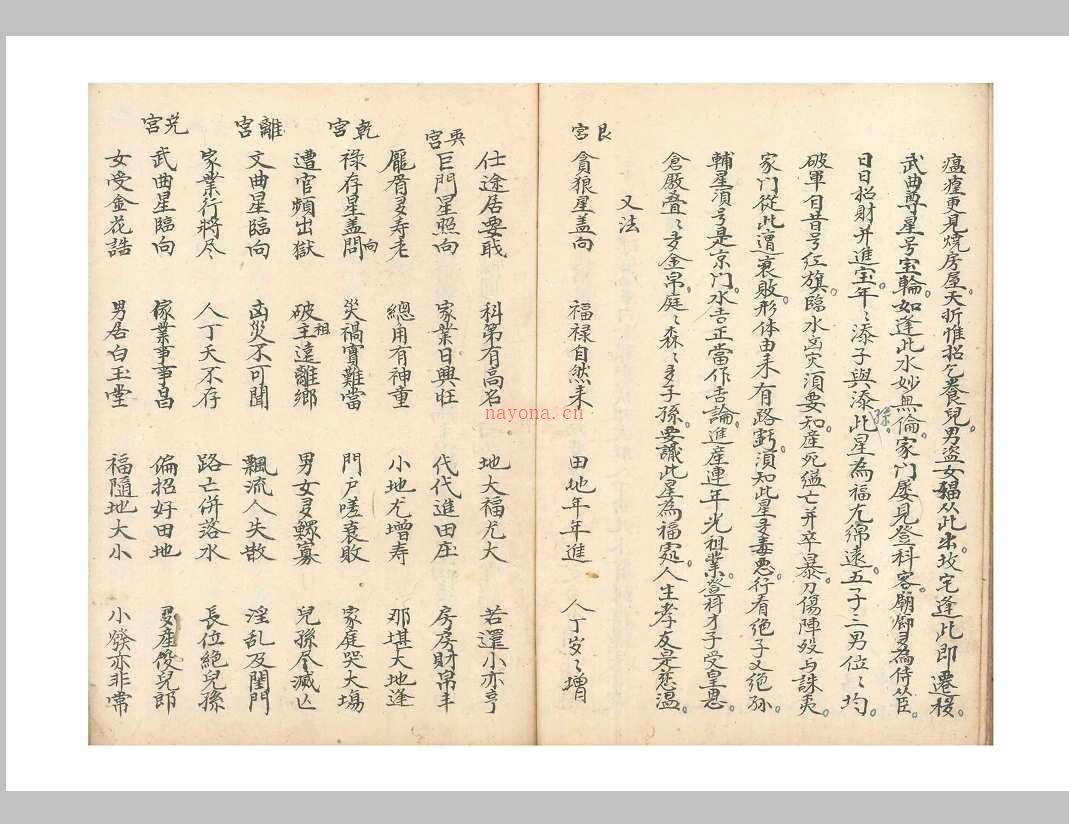 瘟㾮更見燒房屋夭折惟招乞養兒男盜女娼从此出坟宅逢此即遷移
武曲尊星号宝輪如逢此水妙無倫家门屡見登科客廟廊多為侍从臣
日日招財并進宝年〻添子與添孫此星為福尤綿遠五子三男位〻均
破軍自昔号紅旗臨水為灾須要知產死縊亡并卒暴刀傷陣殁与誅夷
家门從此遭衰敗形体由来有路虧須知此星多毒惡行看絕子又絕孙
輔星須号是京门水吉正當作吉論進產連年光祖業登科才子受皇恩
倉廒叠〻多金帛庭〻森〻多子孫要識此星為福處人生孝友是慈溫
又法
艮宮
貪狼星盖向 福禄自然来 田地年年進 人丁岁〻增
仕途居要职 科第有高名 地大福尤大 若還小亦亨
巽宮
巨門星照向 家業日興旺 代代進田庄 房房財帛丰
龎眉多寿老 總角有神童 小地尤增寿 那堪大地逢
乾宮
禄存星盖問向 災禍實難當 門户嗟衰敗 家庭哭大塲
遭官頻出獄 破主祖遠離鄉 男女多鰥寡 兒孫尽滅亡
離宮
文曲星臨向 凶災不可聞 飄流人失散 淫乱及閨門
家業行將尽 人丁夭不存 路亡併落水 長位絕兒孫
兑宮
武曲星臨向 傢業事事昌 偏招好田地 產俊兒郎
女受金花誥 男居白玉堂 福隨地大小 小發亦非常
nayona.cn